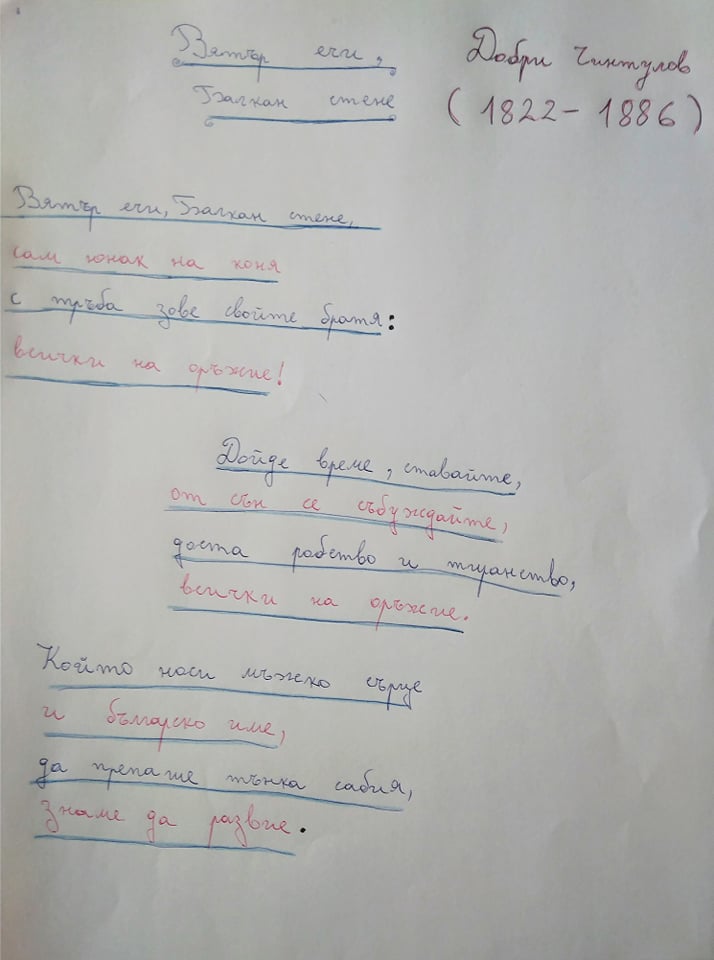 Вятър ечи,
Балкан стене
Добри Чинтулов
(1822 - 1886)
Вятър ечи, Балкан стене,
сам юнак на коня
с тръба зове свойте братя:
всички на оръжие!
Дойде време, ставайте,
от сън се събуждайте,
доста робство и тиранство,
всички на оръжие.
Който носи мъжко сърце
и българско име,
да препаше тънка сабия,
знаме да развие.